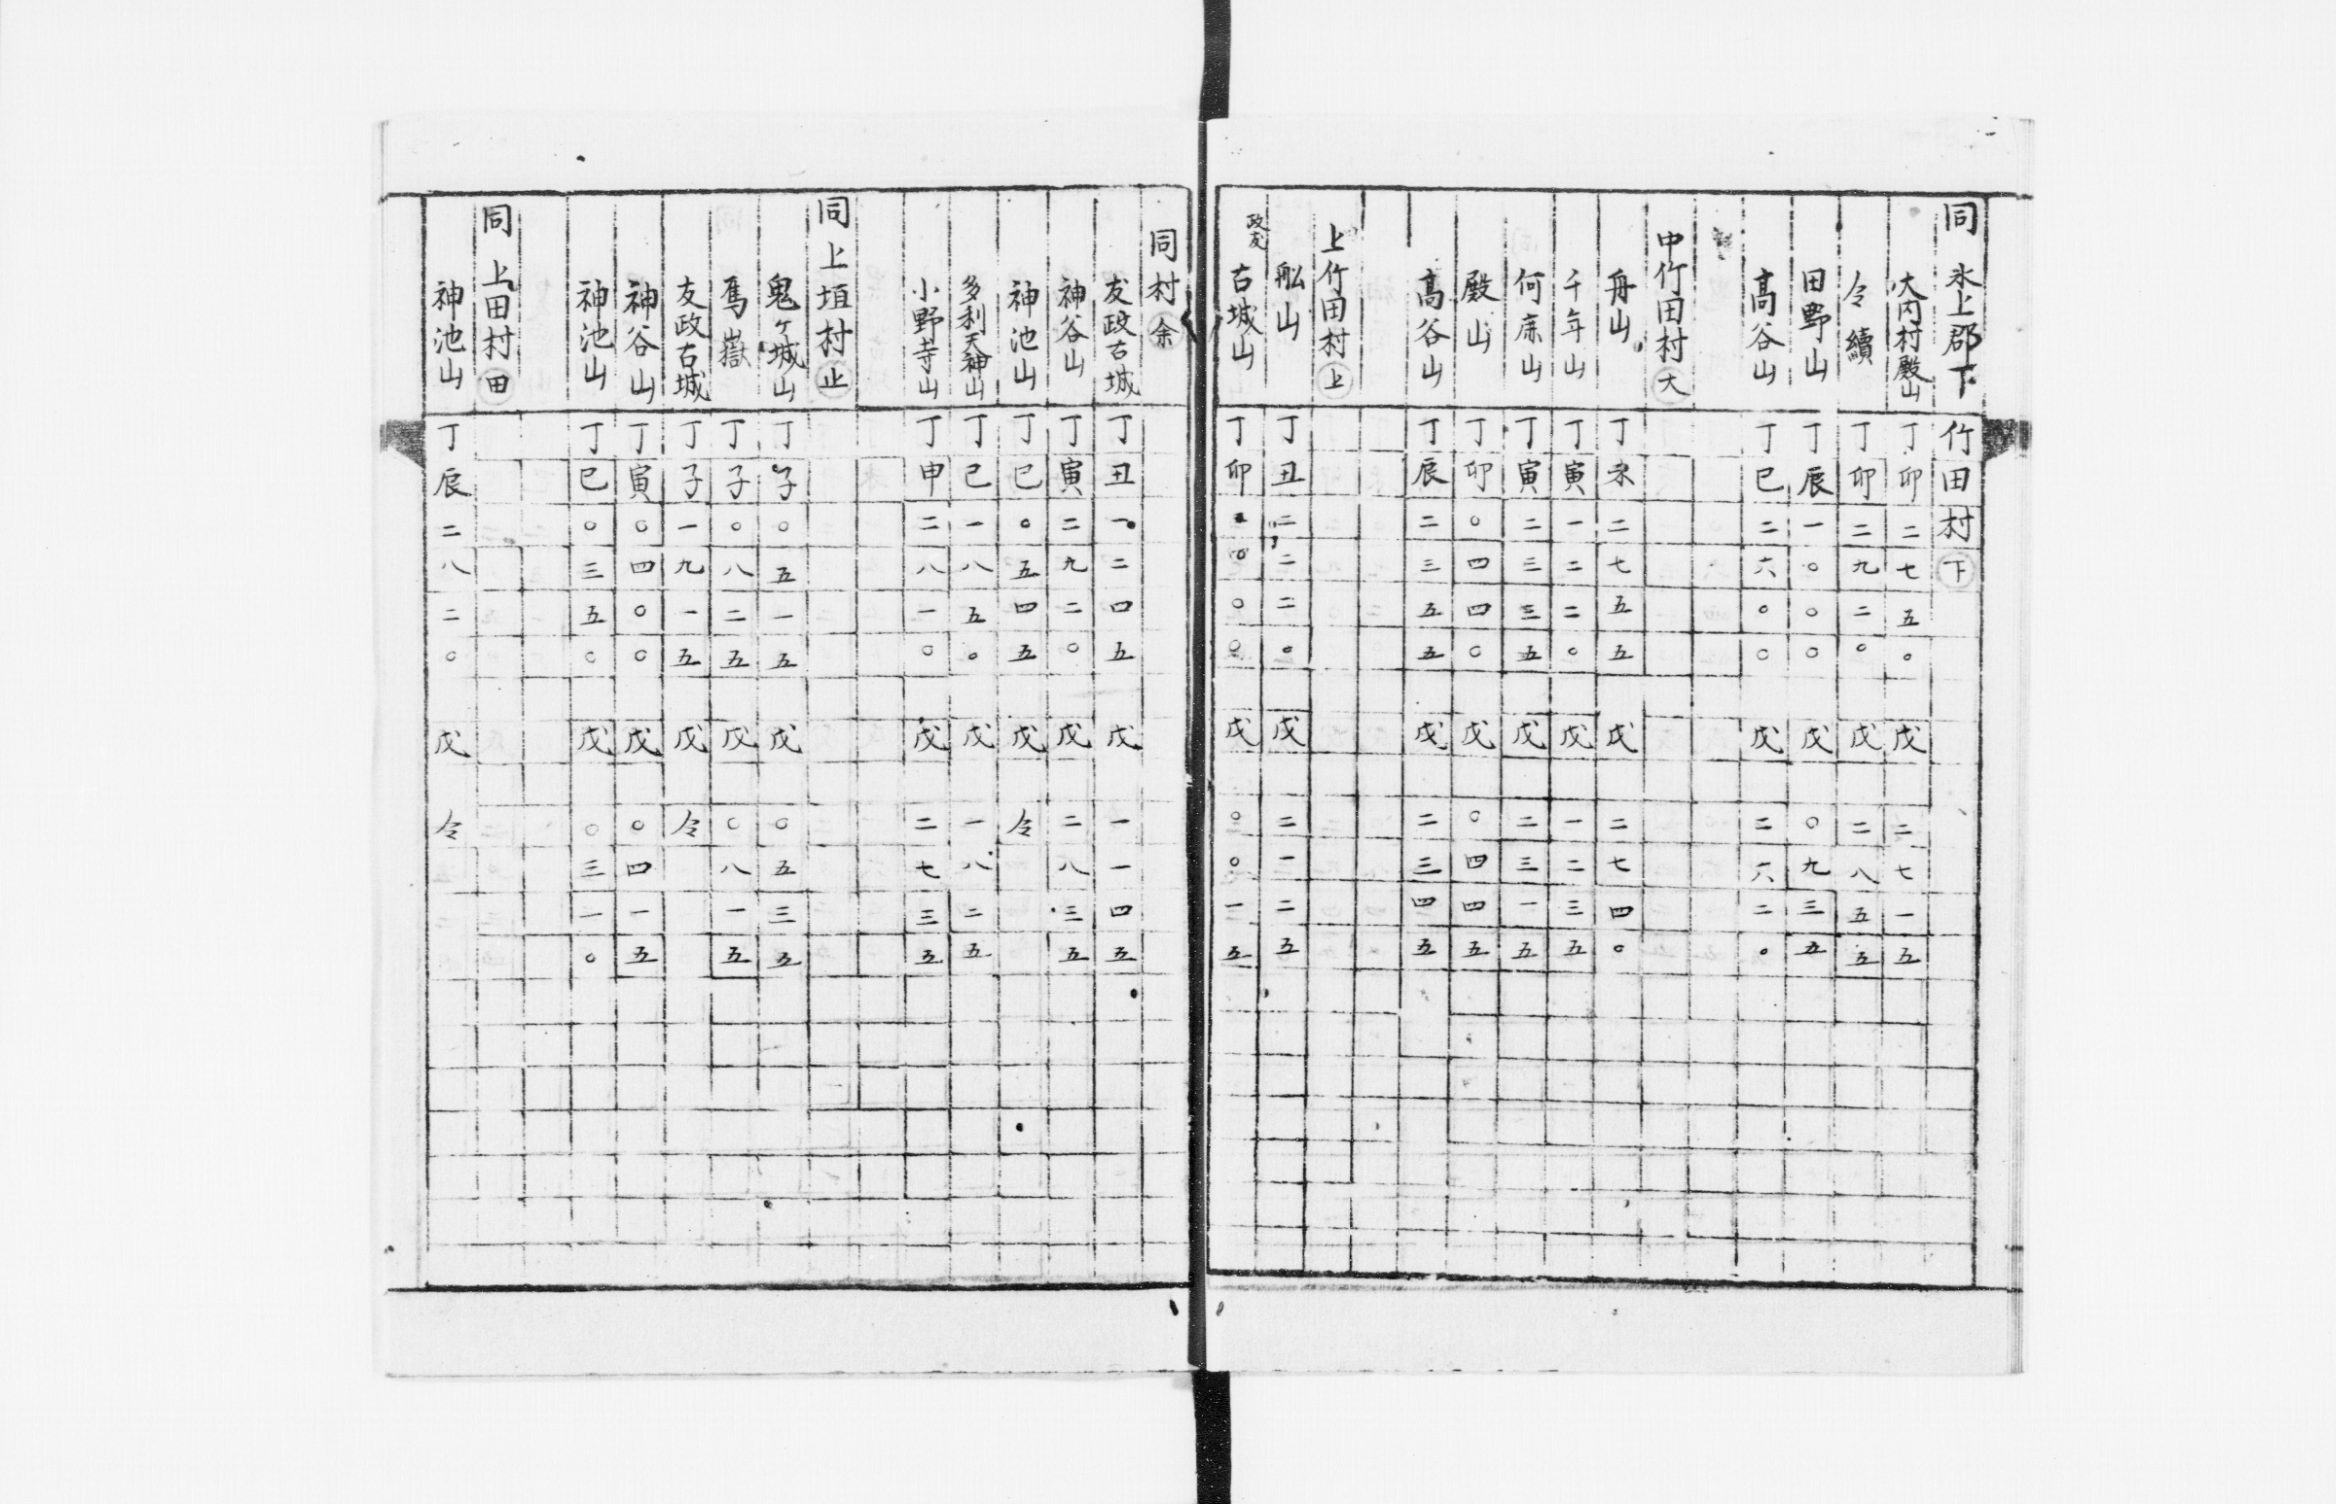 同 氷上郡下竹田村 下
大内村殿山 丁卯二七五〇 戊二七一五
令續 丁卯二九二〇 戊二八五五
田野山 丁辰一〇〇〇 戊〇九三五
高谷山 丁巳二六〇〇 戊二六二〇
中竹田村 大
舟山 丁未二七五五 戊二七四〇
千年山 丁寅一二二〇 戊一二三五
何鹿山 丁寅二三三五 戊二三一五
殿山 丁卯〇四四〇 戊〇四四五
高谷山 丁辰二三五五 戊二三四五
上竹田村 上
舩山 丁丑二二二〇 戊二一二五
友政古城山 丁卯 〇〇〇 戊〇〇一五
同村 余
友政古城 丁丑一二四五 戊一一四五
神谷山 丁寅二九二〇 戊二八三五
神池山 丁巳〇五四五 戊令
多利天神山 丁巳一八五〇 戊一八二五
小野寺山 丁申二八一〇 戊二七三五
同 上垣村 止
鬼ヶ城山 丁子〇五一五 戊〇五三五
馬嶽 丁子〇八二五 戊〇八一五
友政古城 丁子一九一五 戊令
神谷山 丁寅〇四〇〇 戊〇四一五
神池山 丁巳〇三五〇 戊〇三一〇
同 上田村 田
神池山 丁辰二八二〇 戊令